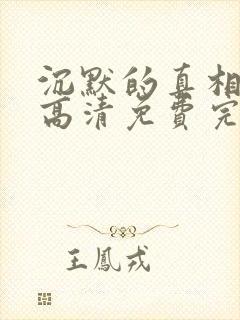 沉默的真相
高清免费完
王鳳戎